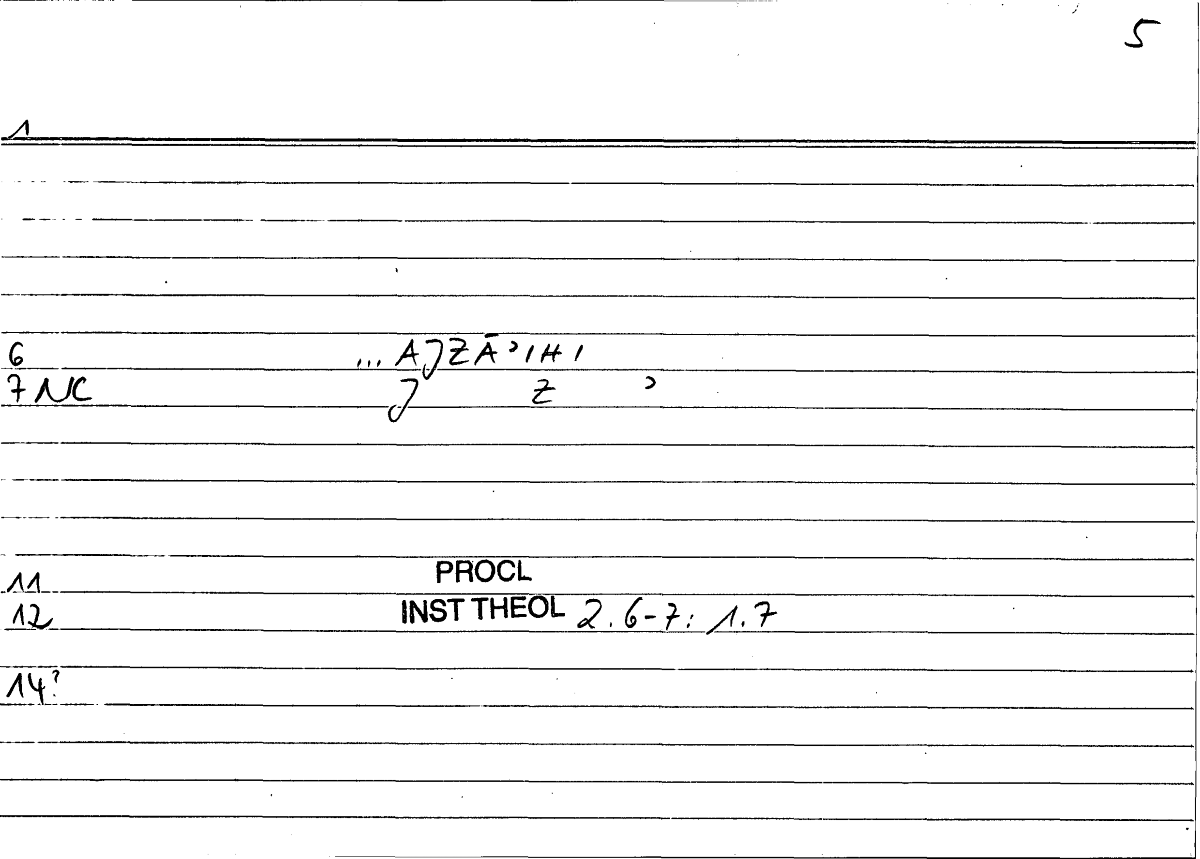 5
1
6 ... AJZĀ'IHI
7 NC J Z '
11 PROCL
12 INST THEOL 2.6-7: 1.7
14?